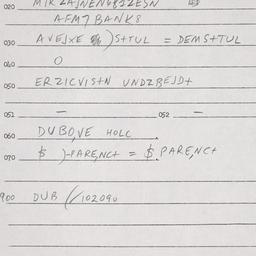 020
AFM7 BANK8
030 AVEJXE ) S++UL = DEMS++UL
040 O
050 ERZICVIS+N UNDZBEJD+
051 — 052 —
060 DUBO,VE HOLC
070 $ )-PARE,NC+ = $ PARE,NC+
900 DUB (/102090